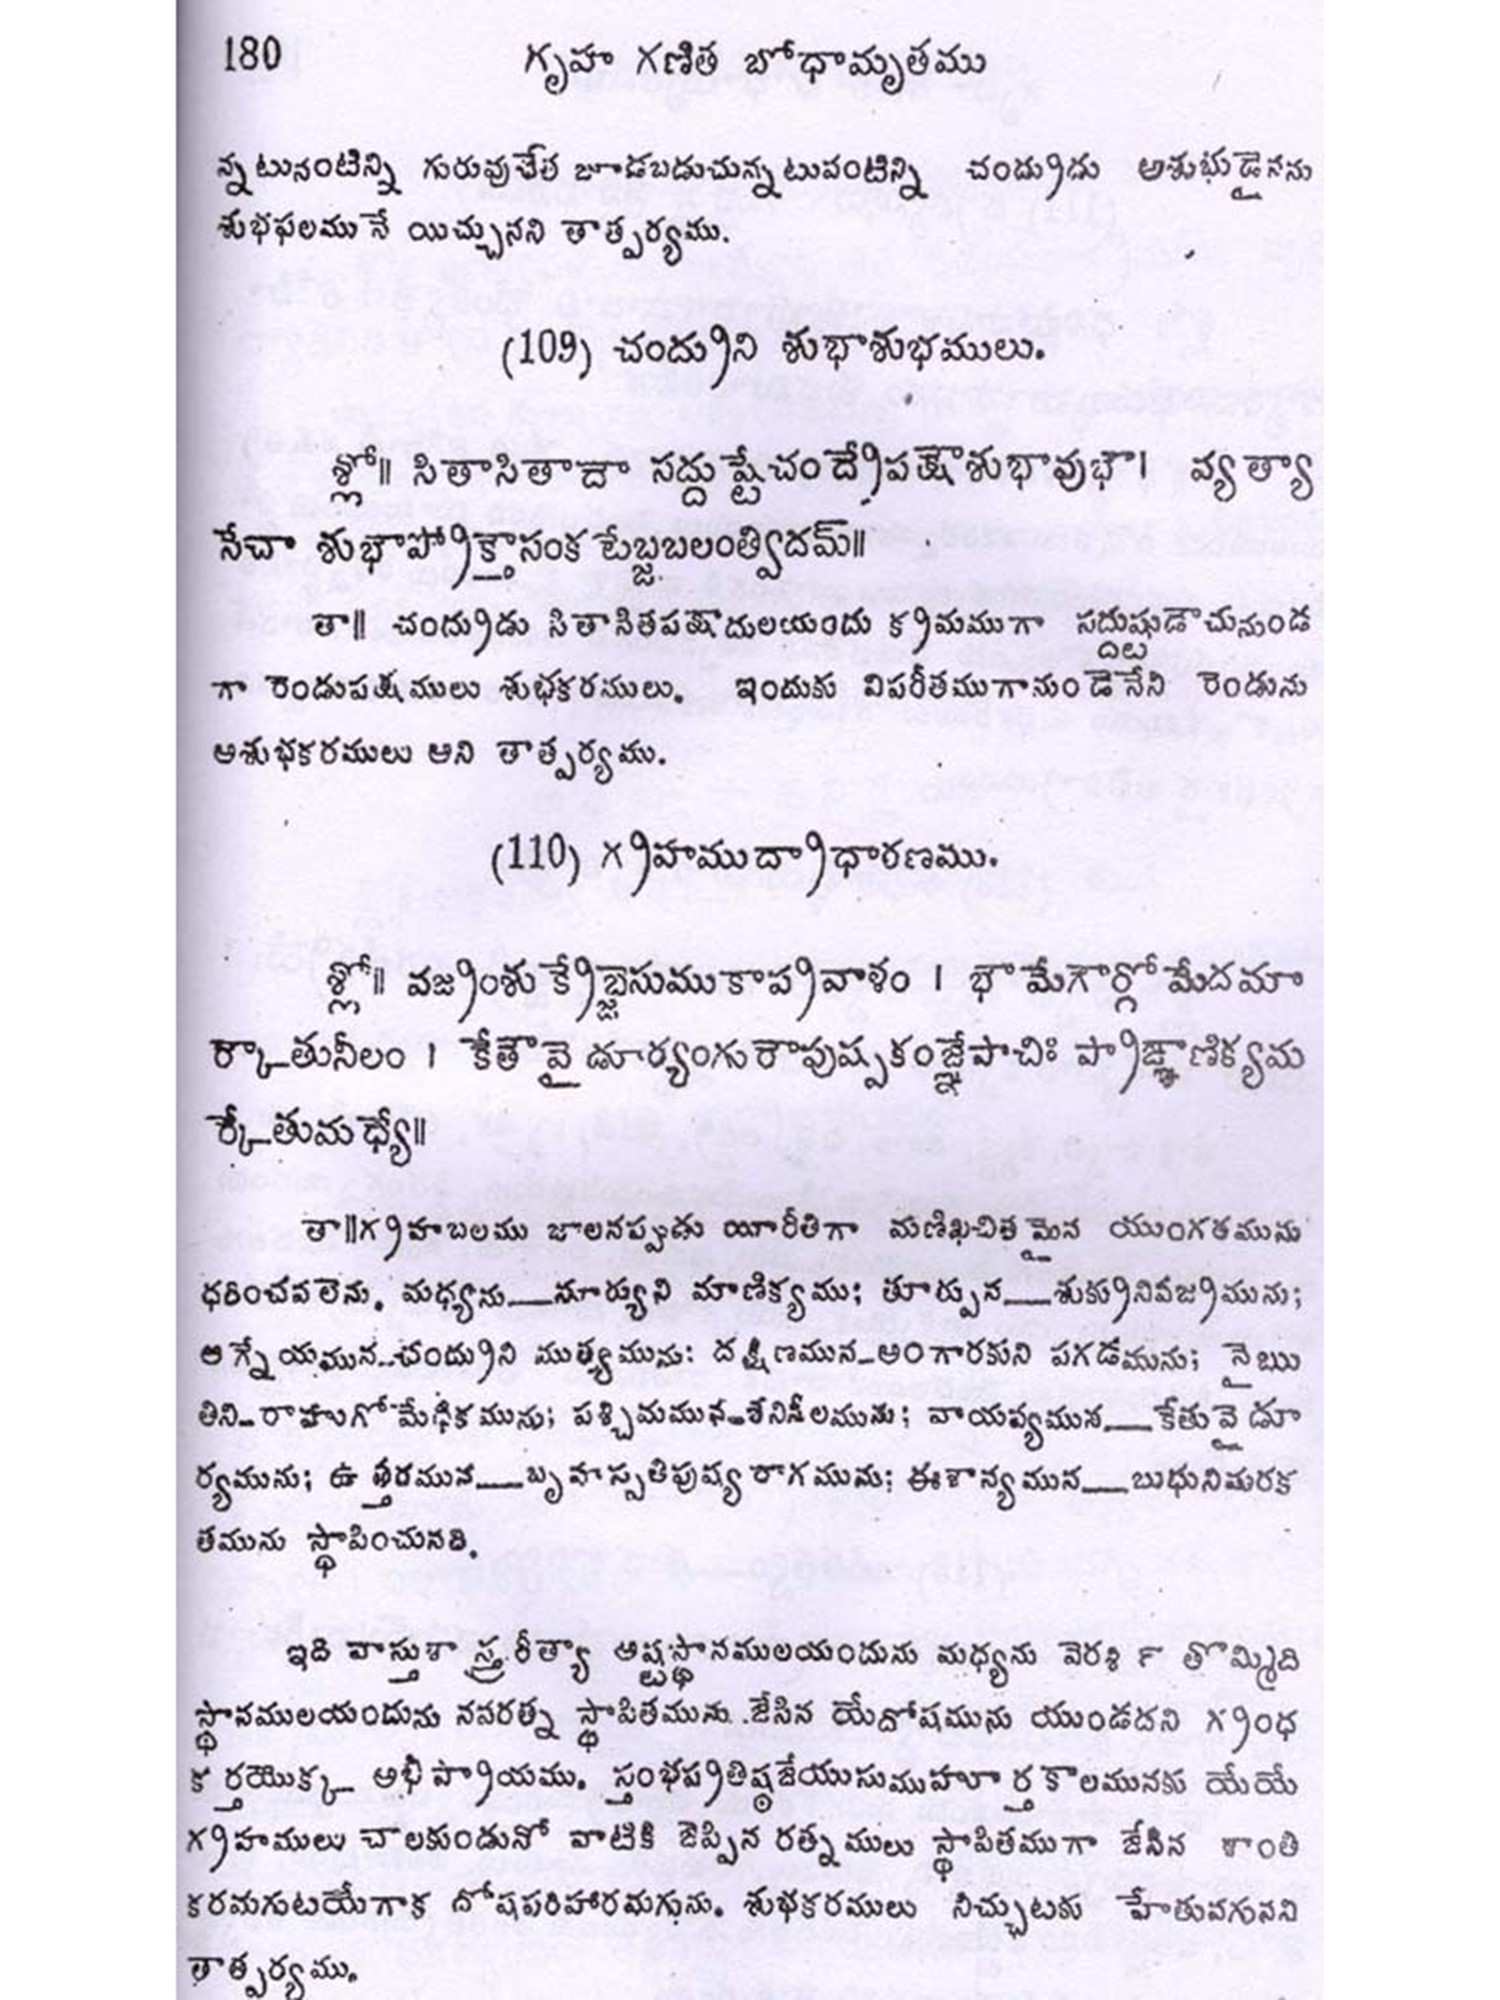 180 గృహ గణిత బోధామృతము
న్నటునంటిన్ని గురువుచేత జూడబడుచున్నటువంటిన్ని చంద్రుడు అశుభుడైనను
శుభఫలమునే యిచ్చునని తాత్పర్యము.
(109) చంద్రుని శుభాశుభములు.
శ్లో॥ సితాసితాదౌ సద్దుష్టేచంద్రేపక్షౌశుభావుభౌ। వ్యత్యా
సేచా శుభాప్రోక్తాసంకటేబ్జబలంత్విదమ్॥
తా॥ చంద్రుడు సితాసితపక్షాదులయందు క్రమముగా సద్దుష్టుడౌచునుండ
గా రెండుపక్షములు శుభకరములు. ఇందుకు విపరీతముగానుండెనేని రెండును
అశుభకరములు అని తాత్పర్యము.
(110) గ్రహముద్రాధారణము.
శ్లో॥ వజ్రంశుక్రేబ్జెసుముకాప్రవాళం । భౌమేగార్గోమేదమా
ర్కౌతునీలం । కేతౌవైడూర్యంగురౌపుష్పకంజ్ఞేపాచిః ప్రాఙ్మాణిక్యమ
ర్కేతుమధ్యే॥
తా॥గ్రహబలము జాలనప్పుడు యీరీతిగా మణిఖచితమైన యుంగతమును
ధరించవలెను. మధ్యను—సూర్యుని మాణిక్యము; తూర్పున—శుక్రునివజ్రమును;
ఆగ్నేయమున-చంద్రుని ముత్యమును: దక్షిణమున-అంగారకుని పగడమును; నైఋ
తిని-రాహుగోమేధికమును; పశ్చిమమున-శనినీలమును; వాయవ్యమున—కేతువైడూ
ర్యమును; ఉత్తరమున—బృహస్పతిపుష్యరాగమును; ఈశాన్యమున—బుధునిమరక
తమును స్థాపించునది.
ఇది వాస్తుశాస్త్రరీత్యా అష్టస్థానములయందును మధ్యను వెరశి ౯ తొమ్మిది
స్థానములయందును నవరత్న స్థాపితమును జేసిన యేదోషమును యుండదని గ్రంధ
కర్తయొక్క అభిప్రాయము. స్తంభప్రతిష్ఠజేయుసుముహూర్తకాలమునకు యేయే
గ్రహములు చాలకుండునో వాటికి జెప్పిన రత్నములు స్థాపితముగా జేసిన శాంతి
కరమగుటయేగాక దోషపరిహారమగును. శుభకరములు నిచ్చుటకు హేతువగునని
తాత్పర్యము.